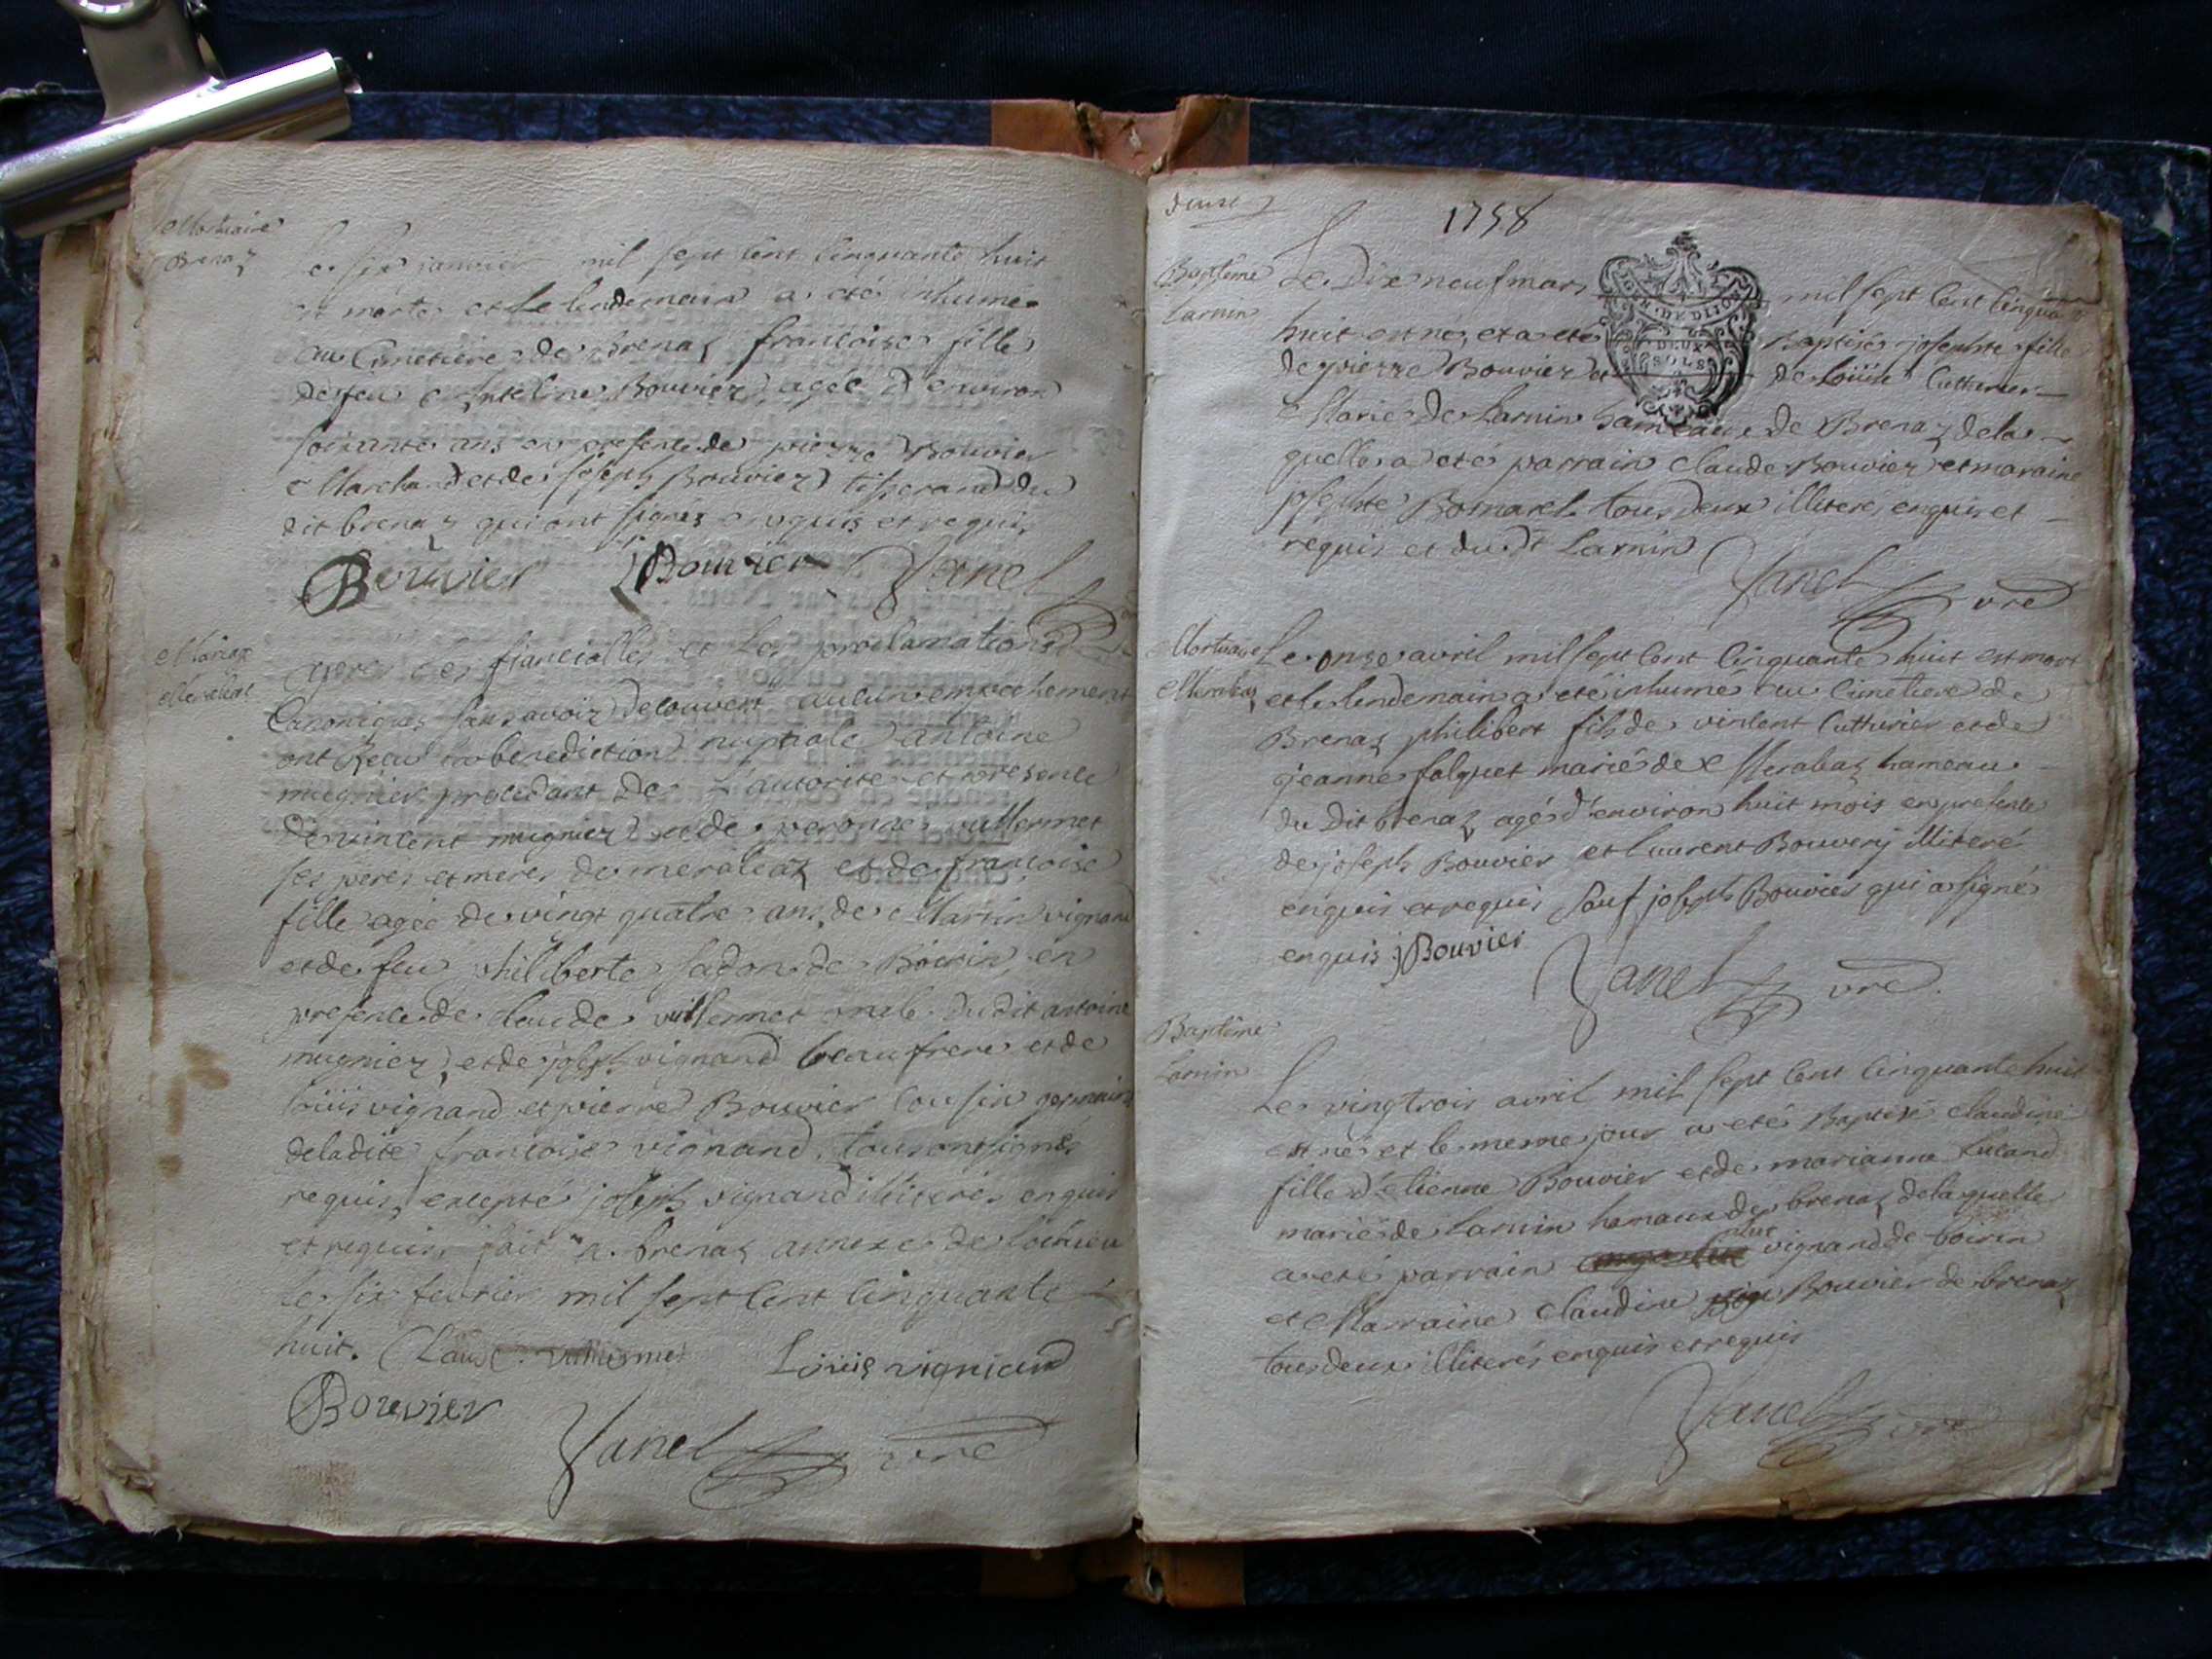 Mortuaire
Brenaz
Le six janvier mil sept cent cinquante huit
est morte et le lendemain a eté inhumée
au Cimetiere de Brenaz francoise fille
de feu Anteline Bouvier agée d'environ
soixante ans en presence de pierre Bouvier
Marchand et de joseph Bouvier tisserand du
dit brenaz qui ont signés enquis et requis
Bouvier JBouvier Yanel
Mariage
apres les fiancialles et les proclamations
Canoniques sans avoir decouvert aucun empechement
ont Recu la benediction nuptiale antoine
mugnier procedant de L'autorité et presence
de vincent mugnier et de peronne vullermet
ses peres et meres de meraleaz et de francoise
fille agée de vingt quatre ans de Martin vignand
et de feu philiberte sadon de Boirin en
presence de claude vullermet oncle du dit antoine
mugnier, et de joseph vignand beau frere et de
loüis vignand et pierre Bouvier cousin germain
de ladite francoise vignand, tous ont signés
requis, excepté joseph vignand illiterés enquis
et requis, fait a brenaz annexe de lochieu
le six fevrier mil sept cent cinquante
huit. Claude vullermet Loüis vigniand
Bouvier
Yanel vre
1758
Baptême
Larnin
Le Dix neuf mars mil sept cent cinquante
DEUX
SOLS
huit est né, et a eté Baptisée josephte fille
de pierre Bouvier et de Loüise Cutturier
Mariés de Larnin hameaux de Brenaz de la
quelle a eté parrain claude Bouvier et maraine
josephte Bornarel tous deux illiterés enquis et
requis et dudt Larnin
Yanel vre
Mortuaire
Merabaz
Le onze avril mil sept cent cinquante huit est mort
et le lendemain a eté inhumé au Cimetiere de
Brenaz philibert fils de vincent Cutturier et de
jeanne folquet mariés de Merabaz hameau
du Dit brenaz agé d'environ huit mois en presence
de joseph Bouvier et laurent Bouvery illiteré
enquis et requis sauf joseph Bouvier qui a signé
enquis jBouvier
Yanel vre
Baptême
Larnin
Le vingtrois avril mil sept cent cinquante huit
est né et le meme jour a eté Baptisé claudine
fille d'etienne Bouvier et de marianne
mariés de Larnin hamaux de brenaz de laquelle
a eté parrain vignand de boirin
et Marraine claudine Bouvier de brenaz
tous deux illiterés enquis et requis
Yanel vre